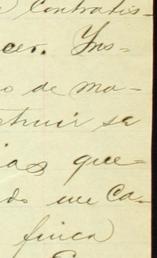 contratis-
cer. Ins-
o de ma-
struir sa
ias que-
do we ca-
finca)